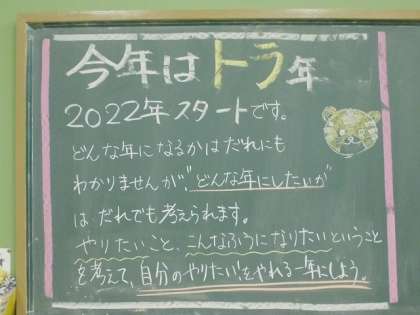 今年はトラ年
2022年スタートです。
どんな年になるかはだれにも
わかりませんが、"どんな年にしたいか"
は だれでも考えられます。
やりたいこと、こんなふうになりたいということ
を考えて、自分のやりたい!をやれる一年にしよう。